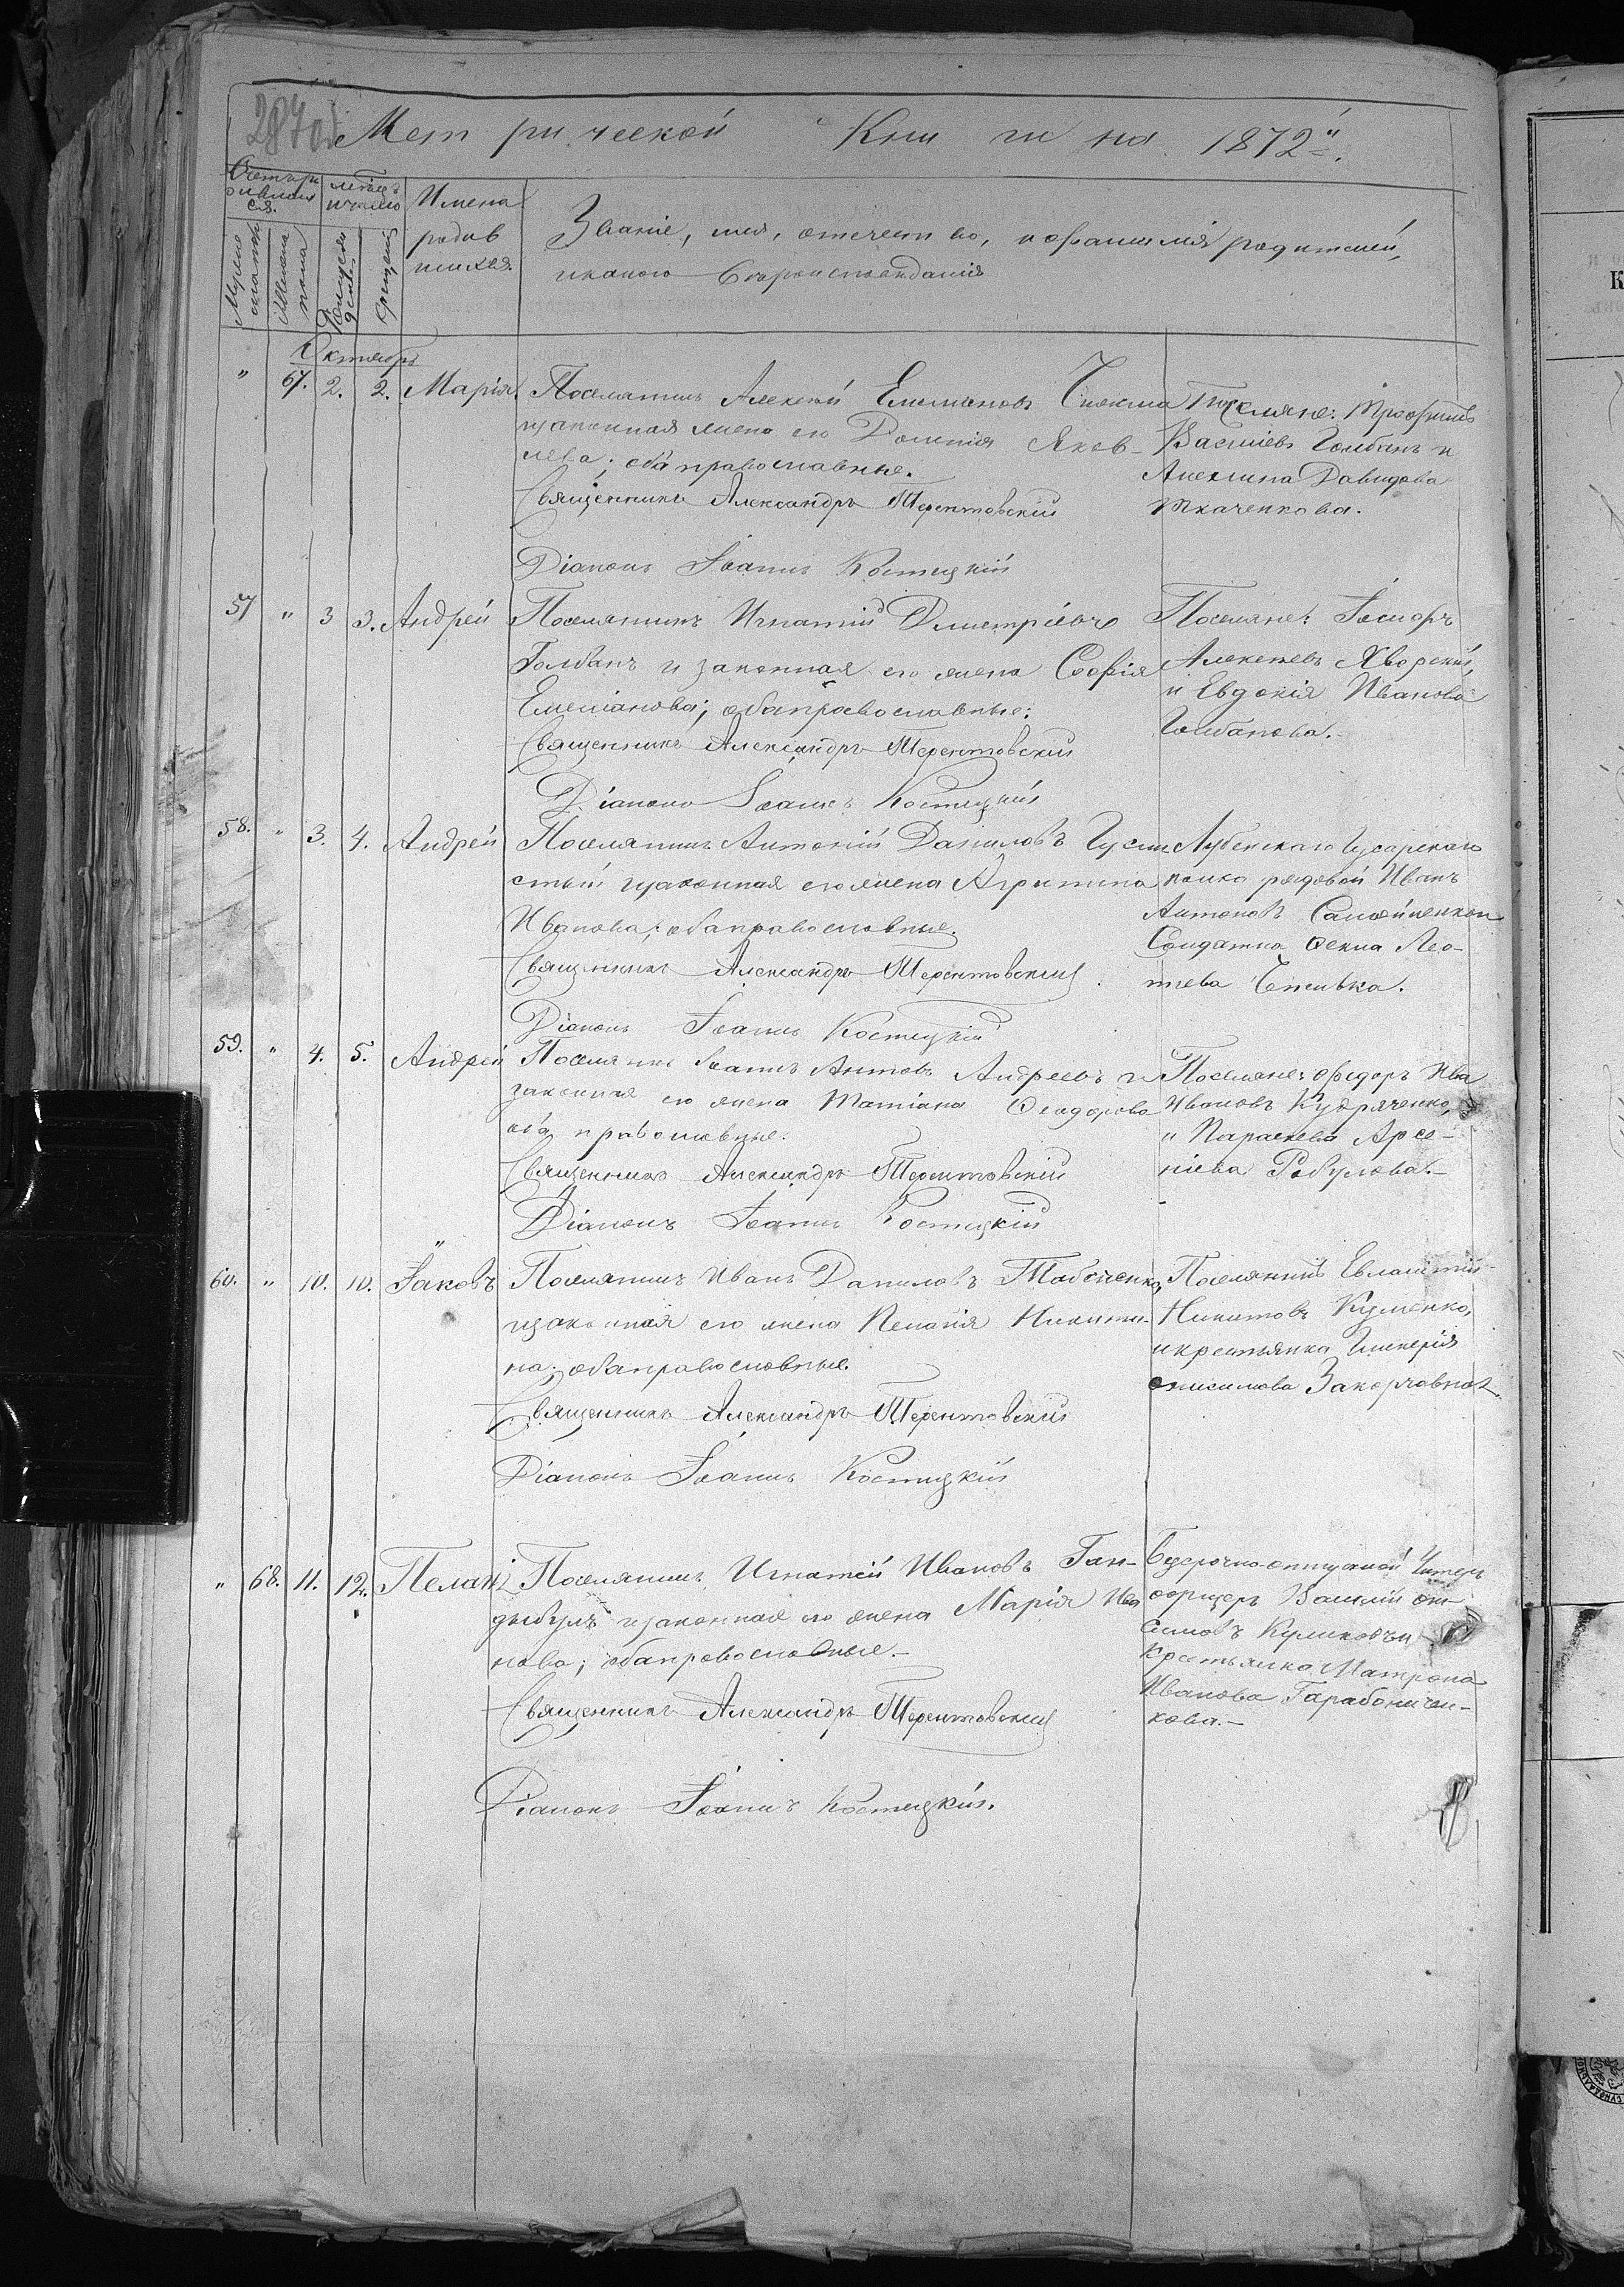 287 об
Метрической Книги на 1872й.
Счетъ родившихся.
Мѣсяцъ и число
Имена родившихся.
Званіе, имя, отечество, и фамилія родителей,
и какого вѣроисповѣданія
Мужеска пола
Женска пола
Рожденія
Крещенія
Октябрь
" 67. 2. 2. Марія.
Поселянинъ Алексѣй Емельяновъ
и законная жена его Домникія Яков-
лева; оба православные.
Священникъ Александръ Терентовскій
Діаконъ Іоаннъ Костецкій
Поселяне: Трофимъ
Василіевъ Голбанъ и
Акелина Давидова
Ткаченкова.
57 " 3 3. Андрей
Поселянинъ Игнатій Дмитріевъ
Голбанъ и законная его жена Софія
Емеліанова; оба православные:
Священникъ Александръ Терентовскій
Діаконъ Іоаннъ Костецкій
Поселяне: Іосифъ
Алексѣевъ Яворскій,
и Евдокія Иванова
Голбанова.-
58. " 3. 4. Андрей
Поселянинъ Антоній Даниловъ Гусли
стый и законная его жена Агрипина
Иванова; оба православные.
Священникъ Александръ Терентовскій
Діаконъ Іоаннъ Костецкій
Лубенскаго Гусарскаго
полка рядовой Иванъ
Антоновъ
Солдатка Ѳекла Лео-
тиева
59. " 4. 5. Андрей
Поселянинъ Іоаннъ Антовъ Андреевъ и
законная его жена Татіана Ѳеодорова
оба православные.
Священникъ Александръ Терентовскій
Діаконъ Іоаннъ Костецкій
Поселяне: Ѳедоръ Ива
Ивановъ Кудряченко,
и Параскева Арсе-
ніева Рабулова.-
60. " 10. 10. Іаковъ
Поселянинъ Иванъ Даниловъ
и законная его жена Пелагія Никити-
на; оба православные.
Священникъ Александръ Терентовскій
Діаконъ Іоаннъ Костецкій
Поселянинъ Евлампій
Никитовъ Кузменко,
и крестьянка Гликерія
Онисимова
" 68. 11. 12. Пелагі
Поселянинъ Игнатій Ивановъ Ган-
дыбулъ и законная его жена Марія Ива
нова; оба православные.-
Священникъ Александръ Терентовскій
Діаконъ Іоаннъ Костецкій.
Безсрочно-отпускной Унтеръ
офицеръ Василій Они
симовъ Куликовъ и
Крестьянка Матрона
Иванова
кова.-